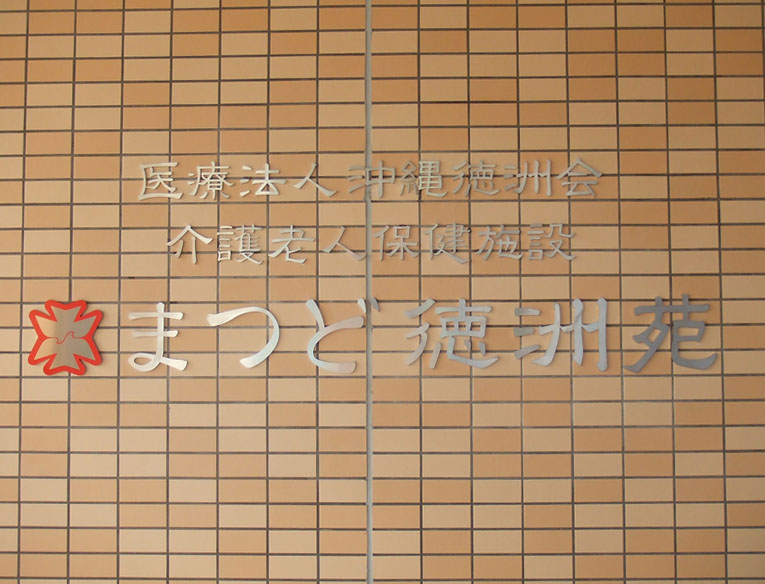 医療法人沖縄徳洲会
介護老人保健施設
まつど徳洲苑